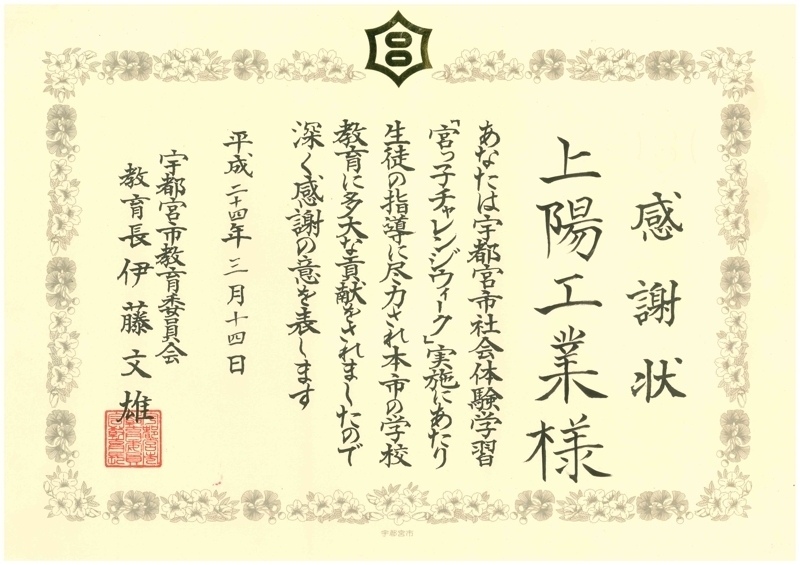 感謝状
上陽工業様
あなたは宇都宮市社会体験学習
「宮っ子チャレンジウィーク」実施にあたり
生徒の指導に尽力され本市の学校
教育に多大な貢献をされましたので
深く感謝の意を表します
平成二十四年三月十四日
宇都宮市教育委員会
教育長伊藤文雄
宇都宮市